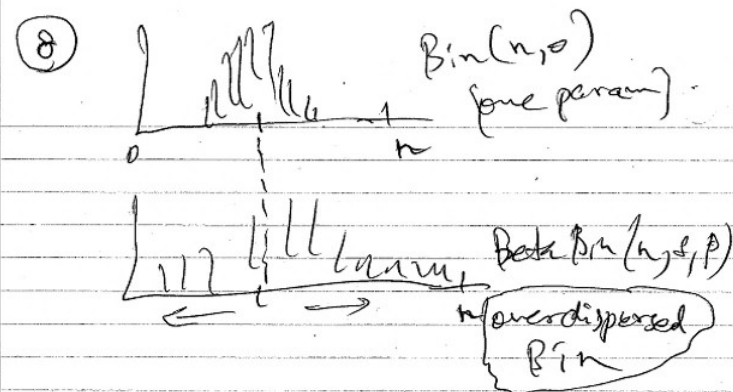 8
Bin(n, θ)
[one param]
0
n
Beta Bin(n, δ, β)
n
overdispersed
Bin